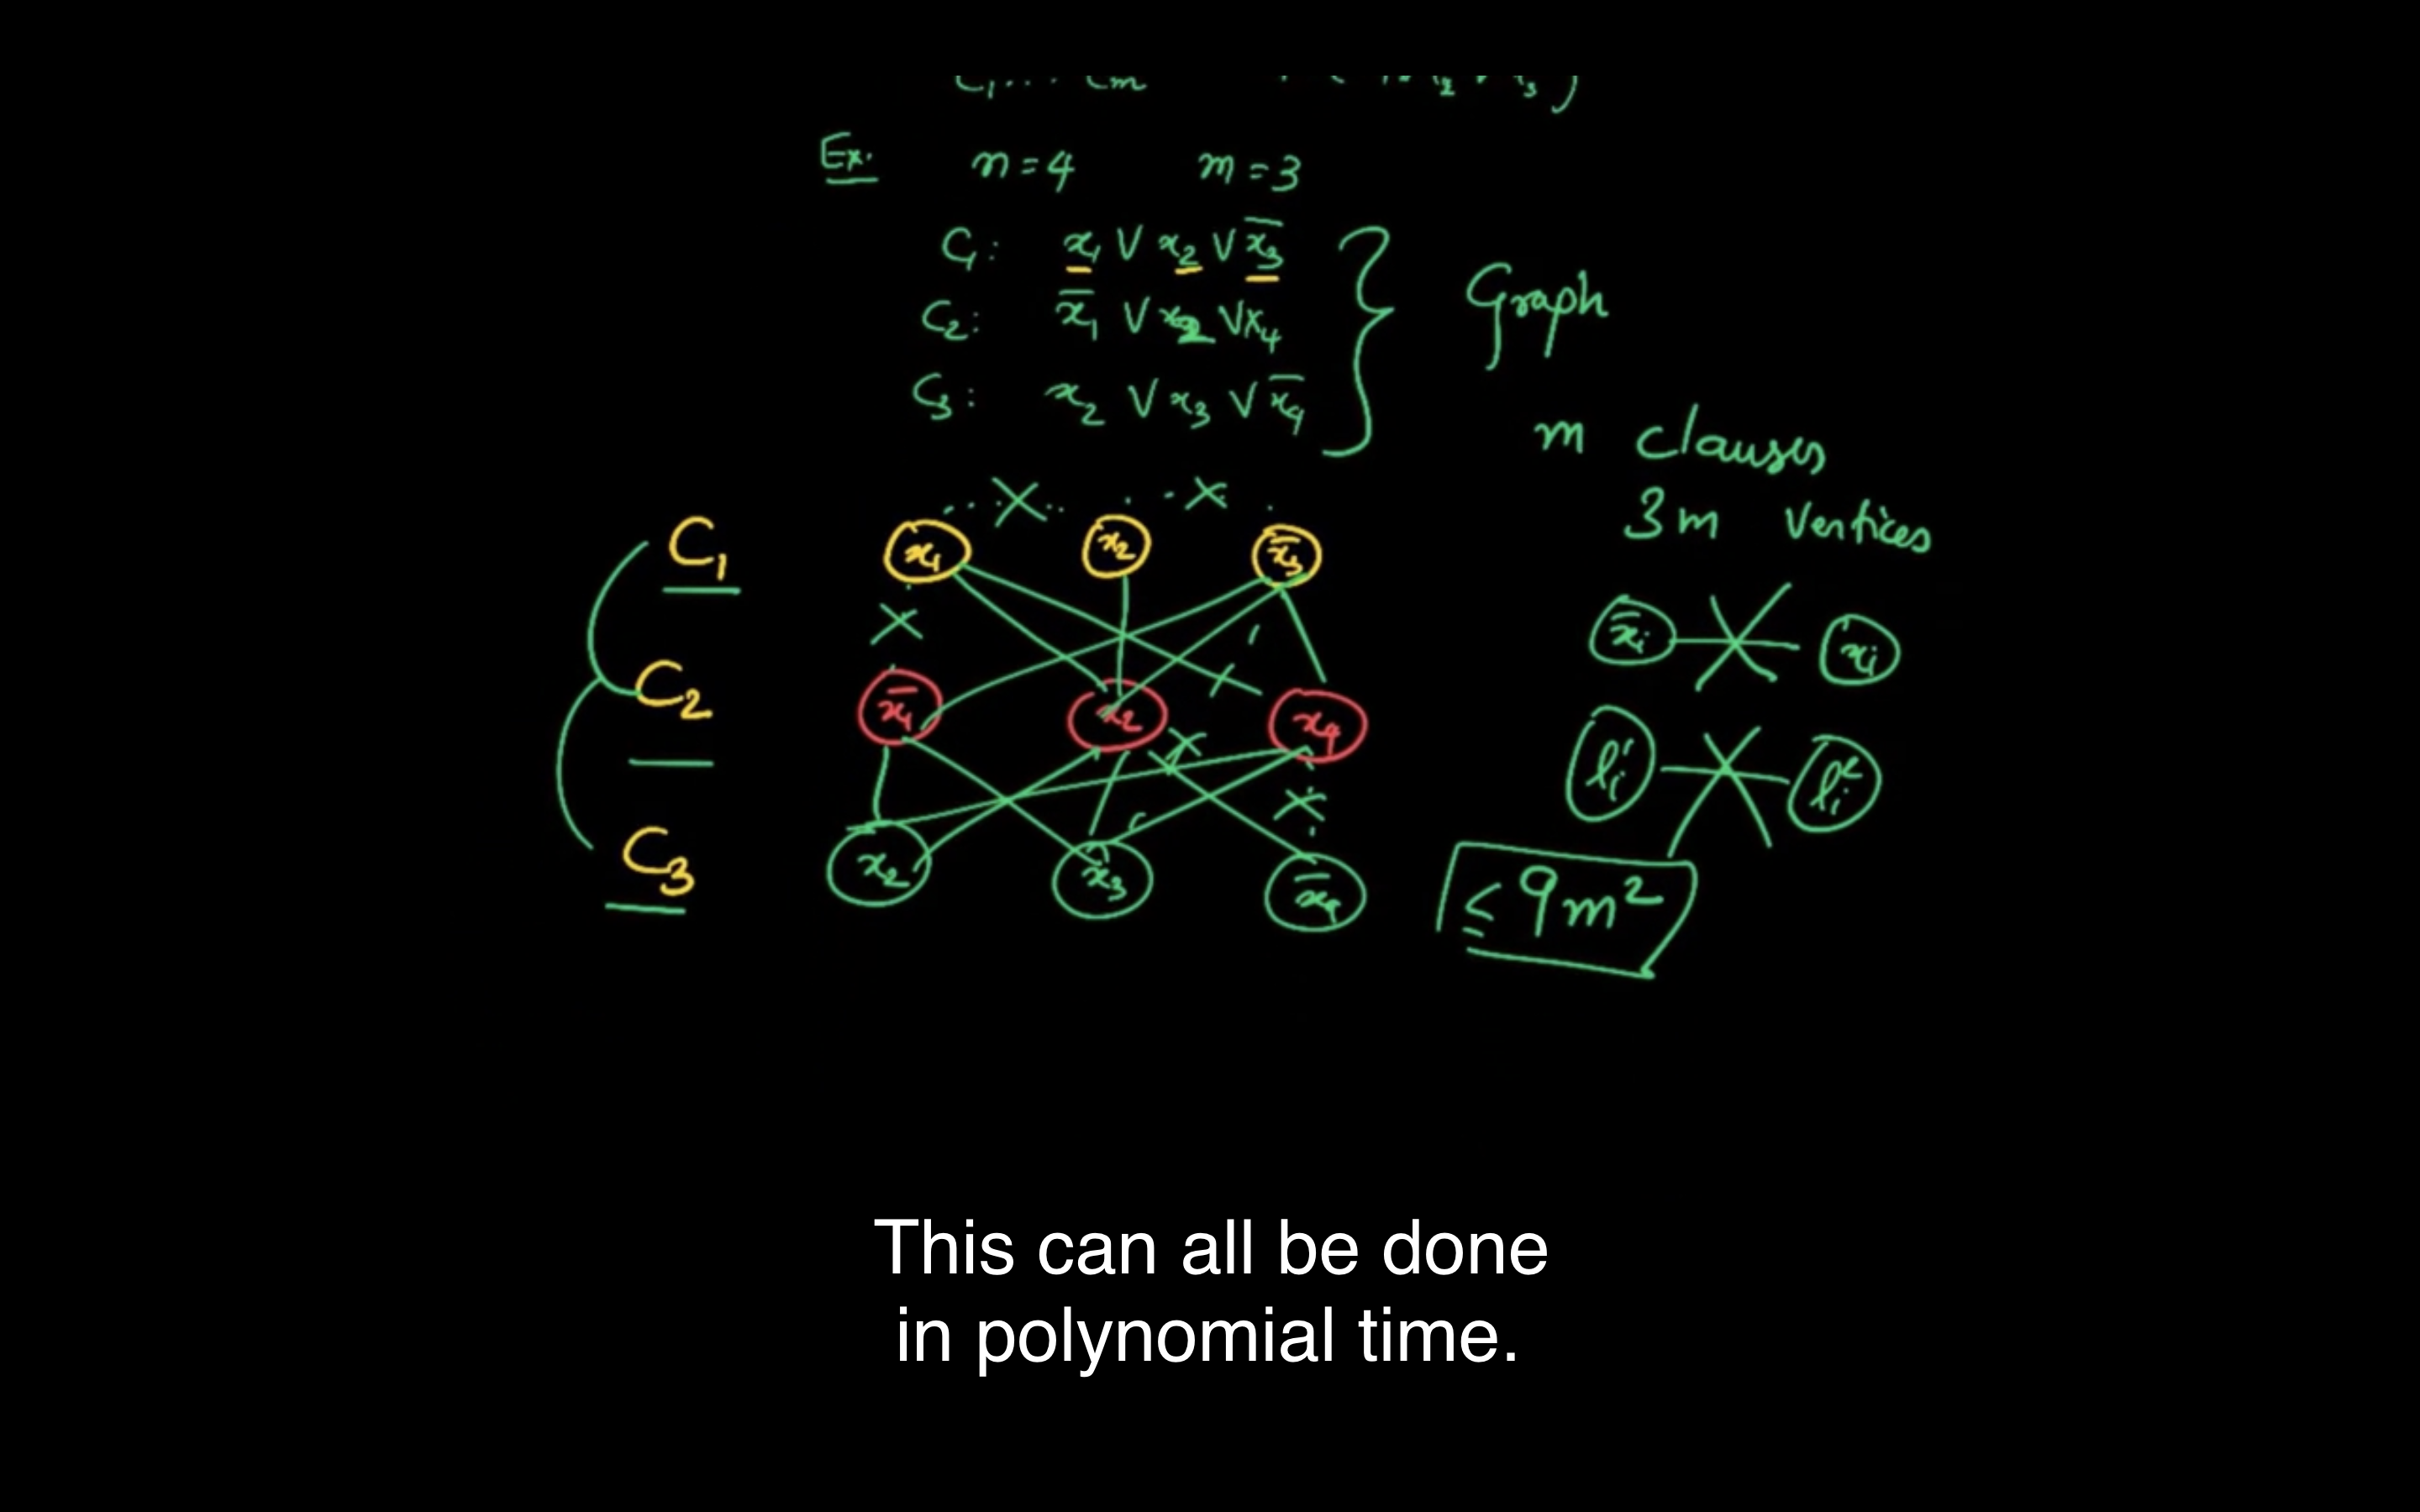 C₁ ... Cₘ
Ex. n=4 m=3
C₁: x₁ ∨ x₂ ∨ x̄₃
C₂: x̄₁ ∨ x₂ ∨ x₄
C₃: x₂ ∨ x₃ ∨ x̄₄
Graph
m clauses
3m vertices
C₁ x₁ x₂ x̄₃
C₂ x̄₁ x₂ x₄
C₃ x₂ x₃ x̄₄
x̄ᵢ xᵢ
≤ 9m²
This can all be done
in polynomial time.